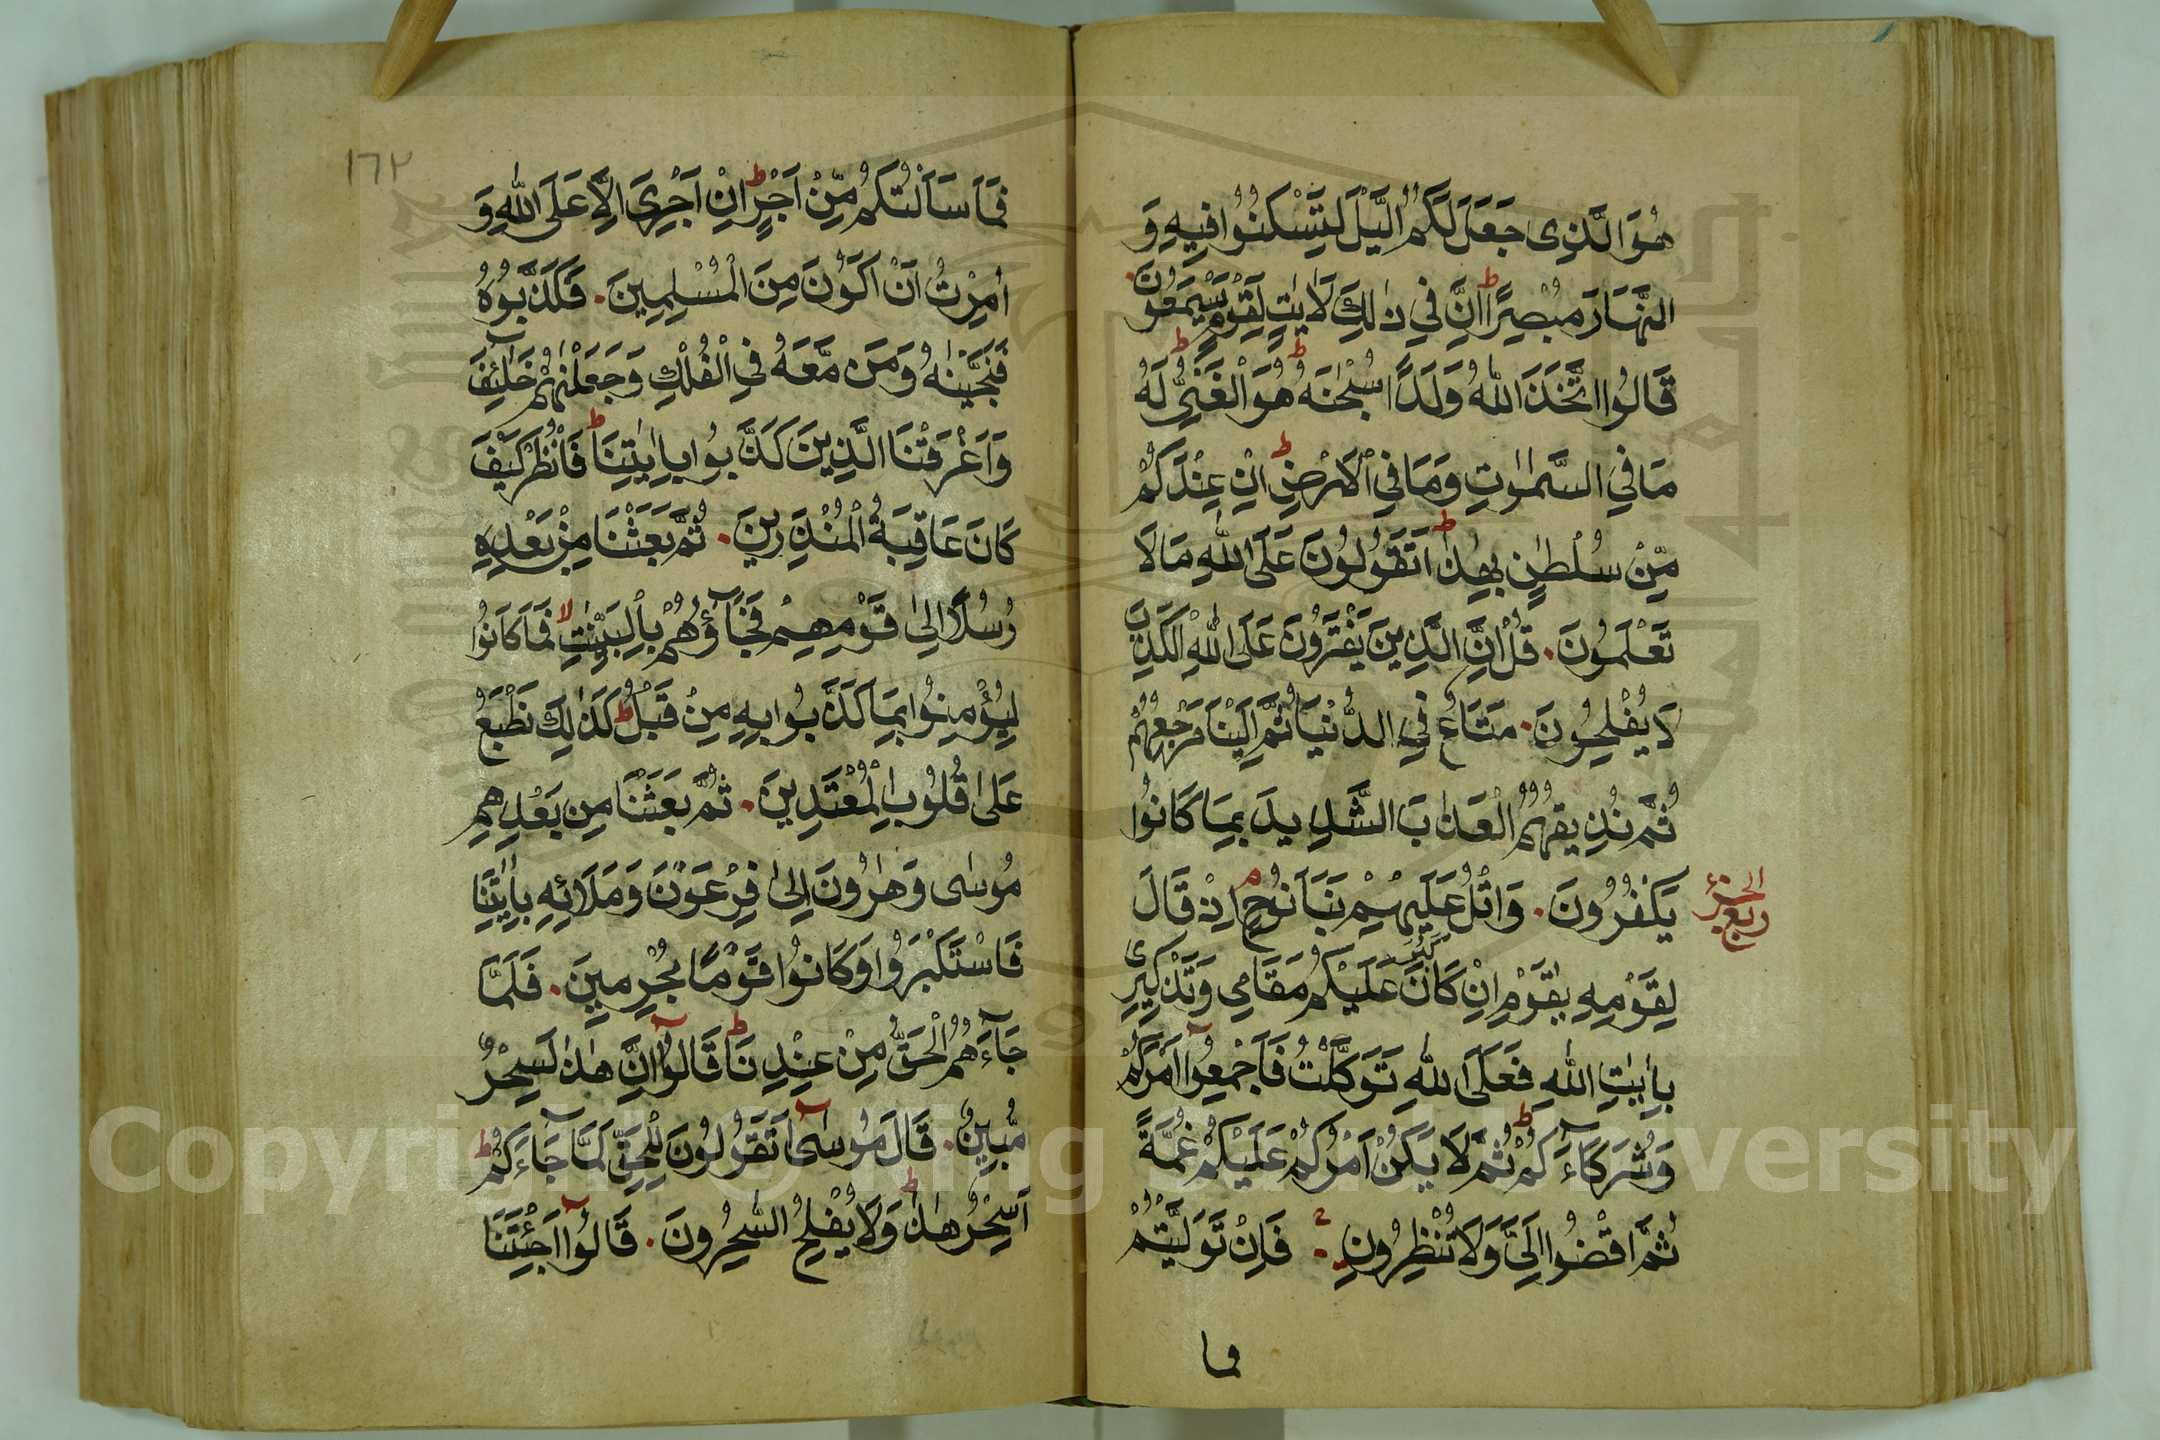 هُوَ الَّذِى جَعَلَ لَكُمُ الَّيْلَ لِتَسْكُنُوا فِيهِ وَ
النَّهَارَ مُبْصِرًا ط اِنَّ فِي ذٰلِكَ لَاٰيٰتٍ لِقَوْمٍ يَسْمَعُونَ
قَالُوا اتَّخَذَ اللّٰهُ وَلَدًا سُبْحٰنَهُ ط هُوَ الْغَنِيُّ ط لَهُ
مَا فِي السَّمٰوٰتِ وَمَا فِي الْاَرْضِ ط اِنْ عِنْدَكُمْ
مِّنْ سُلْطٰنٍ بِهٰذَا ط اَتَقُولُونَ عَلَى اللّٰهِ مَا لَا
تَعْلَمُونَ . قُلْ اِنَّ الَّذِينَ يَفْتَرُونَ عَلَى اللّٰهِ الْكَذِبَ
لَا يُفْلِحُونَ . مَتَاعٌ فِي الدُّنْيَا ثُمَّ اِلَيْنَا مَرْجِعُهُمْ
ثُمَّ نُذِيقُهُمُ الْعَذَابَ الشَّدِيدَ بِمَا كَانُوا
يَكْفُرُونَ . وَاتْلُ عَلَيْهِمْ نَبَاَ نُوحٍ م اِذْ قَالَ
ربع الحزب
لِقَوْمِهِ يٰقَوْمِ اِنْ كَانَ كَبُرَ عَلَيْكُمْ مَقَامِي وَتَذْكِيرِى
بِاٰيٰتِ اللّٰهِ فَعَلَى اللّٰهِ تَوَكَّلْتُ فَاَجْمِعُوٓا اَمْرَكُمْ
وَشُرَكَاءَكُمْ ط ثُمَّ لَا يَكُنْ اَمْرُكُمْ عَلَيْكُمْ غُمَّةً
ثُمَّ اقْضُوا اِلَيَّ وَلَا تُنْظِرُونِ . فَاِنْ تَوَلَّيْتُمْ
فما
١٦٢
فَمَا سَاَلْتُكُمْ مِّنْ اَجْرٍ ط اِنْ اَجْرِىَ اِلَّا عَلَى اللّٰهِ وَ
اُمِرْتُ اَنْ اَكُونَ مِنَ الْمُسْلِمِينَ . فَكَذَّبُوهُ
فَنَجَّيْنٰهُ وَمَنْ مَّعَهُ فِي الْفُلْكِ وَجَعَلْنٰهُمْ خَلٰٓئِفَ
وَاَغْرَقْنَا الَّذِينَ كَذَّبُوا بِاٰيٰتِنَا ط فَانْظُرْ كَيْفَ
كَانَ عَاقِبَةُ الْمُنْذَرِينَ . ثُمَّ بَعَثْنَا مِنْ بَعْدِهِ
رُسُلًا اِلٰى قَوْمِهِمْ فَجَآؤُهُمْ بِالْبَيِّنٰتِ لا فَمَا كَانُوا
لِيُؤْمِنُوا بِمَا كَذَّبُوا بِهِ مِنْ قَبْلُ ط كَذٰلِكَ نَطْبَعُ
عَلٰى قُلُوبِ الْمُعْتَدِينَ . ثُمَّ بَعَثْنَا مِنْ بَعْدِهِمْ
مُوسٰى وَهٰرُونَ اِلٰى فِرْعَوْنَ وَمَلَائِهِ بِاٰيٰتِنَا
فَاسْتَكْبَرُوا وَكَانُوا قَوْمًا مُجْرِمِينَ . فَلَمَّا
جَآءَهُمُ الْحَقُّ مِنْ عِنْدِنَا ط قَالُوٓا اِنَّ هٰذَا لَسِحْرٌ
مُّبِينٌ . قَالَ مُوسٰٓى اَتَقُولُونَ لِلْحَقِّ لَمَّا جَآءَكُمْ ط
اَسِحْرٌ هٰذَا ط وَلَا يُفْلِحُ السّٰحِرُونَ . قَالُوٓا اَجِئْتَنَا
Copyright © King Saud University